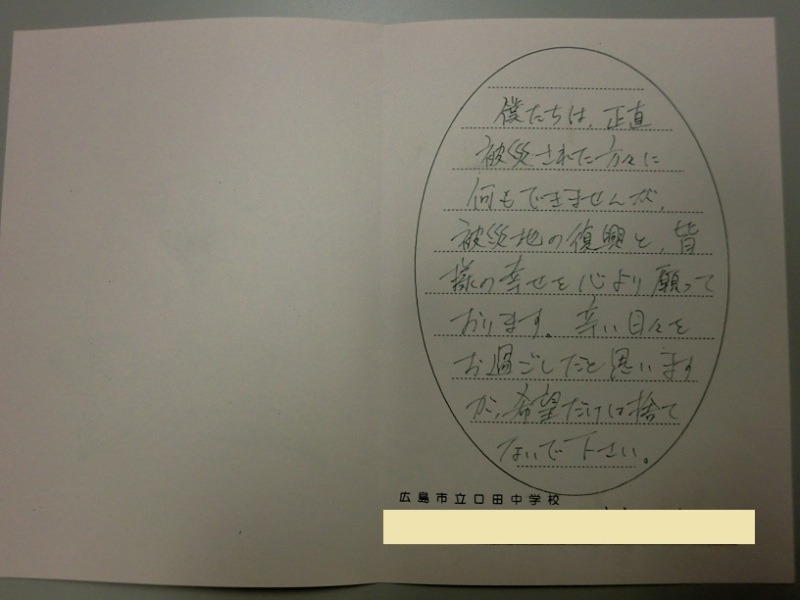 僕たちは、正直
被災された方々に
何もできませんが、
被災地の復興と、皆
様の幸せを心より願って
おります。辛い日々を
お過ごしだと思います
が、希望だけは捨て
ないで下さい。
広島市立口田中学校